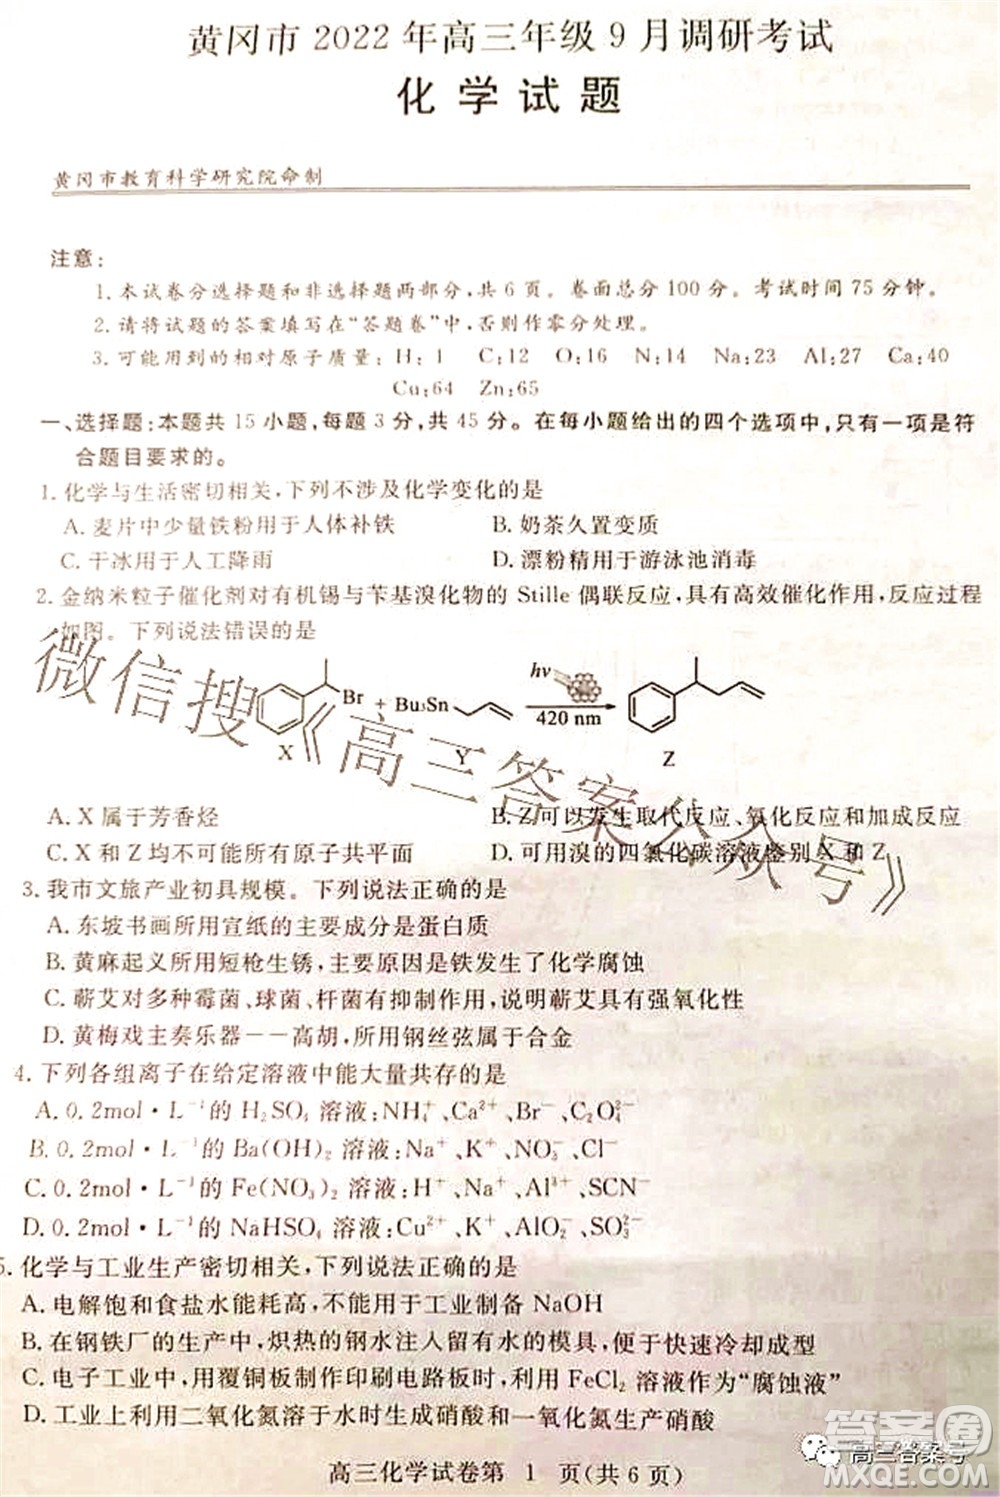 黄冈市 2022 年高三年级 9 月调研考试
化学试题
黄冈市教育科学研究院命制
注意:
1. 本试卷分选择题和非选择题两部分,共 6 页。卷面总分 100 分。考试时间 75 分钟。
2. 请将试题的答案填写在“答题卷”中,否则作零分处理。
3. 可能用到的相对原子质量: H: 1 C:12 O:16 N:14 Na:23 Al:27 Ca:40
Cu:64 Zn:65
一、选择题:本题共 15 小题,每题 3 分,共 45 分。在每小题给出的四个选项中,只有一项是符
合题目要求的。
1. 化学与生活密切相关,下列不涉及化学变化的是
A. 麦片中少量铁粉用于人体补铁 B. 奶茶久置变质
C. 干冰用于人工降雨 D. 漂粉精用于游泳池消毒
2. 金纳米粒子催化剂对有机锡与苄基溴化物的 Stille 偶联反应,具有高效催化作用,反应过程
如图。下列说法错误的是
Br + Bu₃Sn hν 420 nm
X Y Z
A. X 属于芳香烃 B. Z 可以发生取代反应、氧化反应和加成反应
C. X 和 Z 均不可能所有原子共平面 D. 可用溴的四氯化碳溶液鉴别 X 和 Z
3. 我市文旅产业初具规模。下列说法正确的是
A. 东坡书画所用宣纸的主要成分是蛋白质
B. 黄麻起义所用短枪生锈,主要原因是铁发生了化学腐蚀
C. 蕲艾对多种霉菌、球菌、杆菌有抑制作用,说明蕲艾具有强氧化性
D. 黄梅戏主奏乐器——高胡,所用钢丝弦属于合金
4. 下列各组离子在给定溶液中能大量共存的是
A. 0.2mol·L⁻¹的 H₂SO₄ 溶液:NH₄⁺、Ca²⁺、Br⁻、C₂O₄²⁻
B. 0.2mol·L⁻¹的 Ba(OH)₂ 溶液:Na⁺、K⁺、NO₃⁻、Cl⁻
C. 0.2mol·L⁻¹的 Fe(NO₃)₂ 溶液:H⁺、Na⁺、Al³⁺、SCN⁻
D. 0.2mol·L⁻¹的 NaHSO₄ 溶液:Cu²⁺、K⁺、AlO₂⁻、SO₃²⁻
5. 化学与工业生产密切相关,下列说法正确的是
A. 电解饱和食盐水能耗高,不能用于工业制备 NaOH
B. 在钢铁厂的生产中,炽热的钢水注入留有水的模具,便于快速冷却成型
C. 电子工业中,用覆铜板制作印刷电路板时,利用 FeCl₂ 溶液作为“腐蚀液”
D. 工业上利用二氧化氮溶于水时生成硝酸和一氧化氮生产硝酸
高三化学试卷第 1 页(共 6 页)
微信搜《高三答案公众号》
高三答案号
答案圈
MXQE.COM